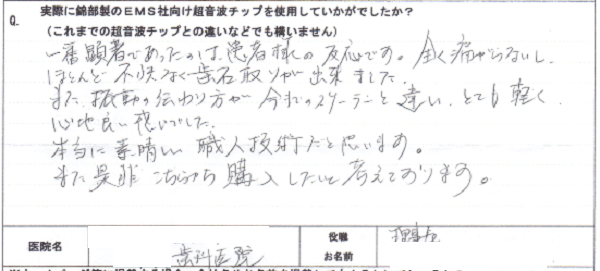 Q. 実際に錦部製のEMS社向け超音波チップを使用していかがでしたか?
(これまでの超音波チップとの違いなどでも構いません)
一番顕著であったのは患者様の反応です。全く痛がらないし、
ほとんど不快なく歯石取りが出来ました。
また、振動の伝わり方が今までのスケーラーと違い、とても軽く、
心地良い感じでした。
本当に素晴しい職人技術だと思います。
また是非こちらから購入したいと考えております。
医院名 歯科医院 役職
お名前